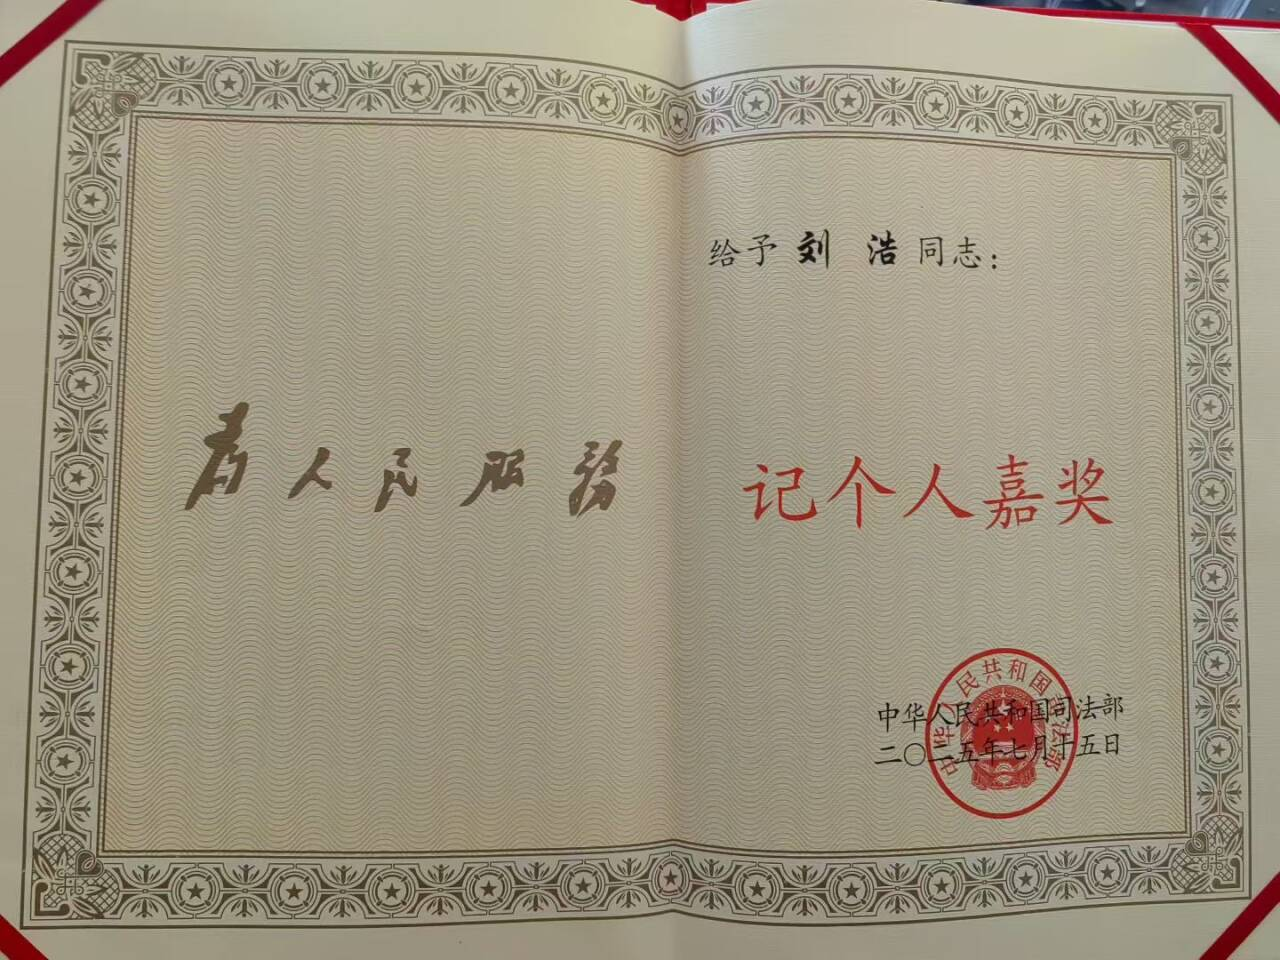 為人民服務
给予 刘 浩 同志：
记个人嘉奖
中华人民共和国司法部
二〇二五年七月十五日
中华人民共和国司法部